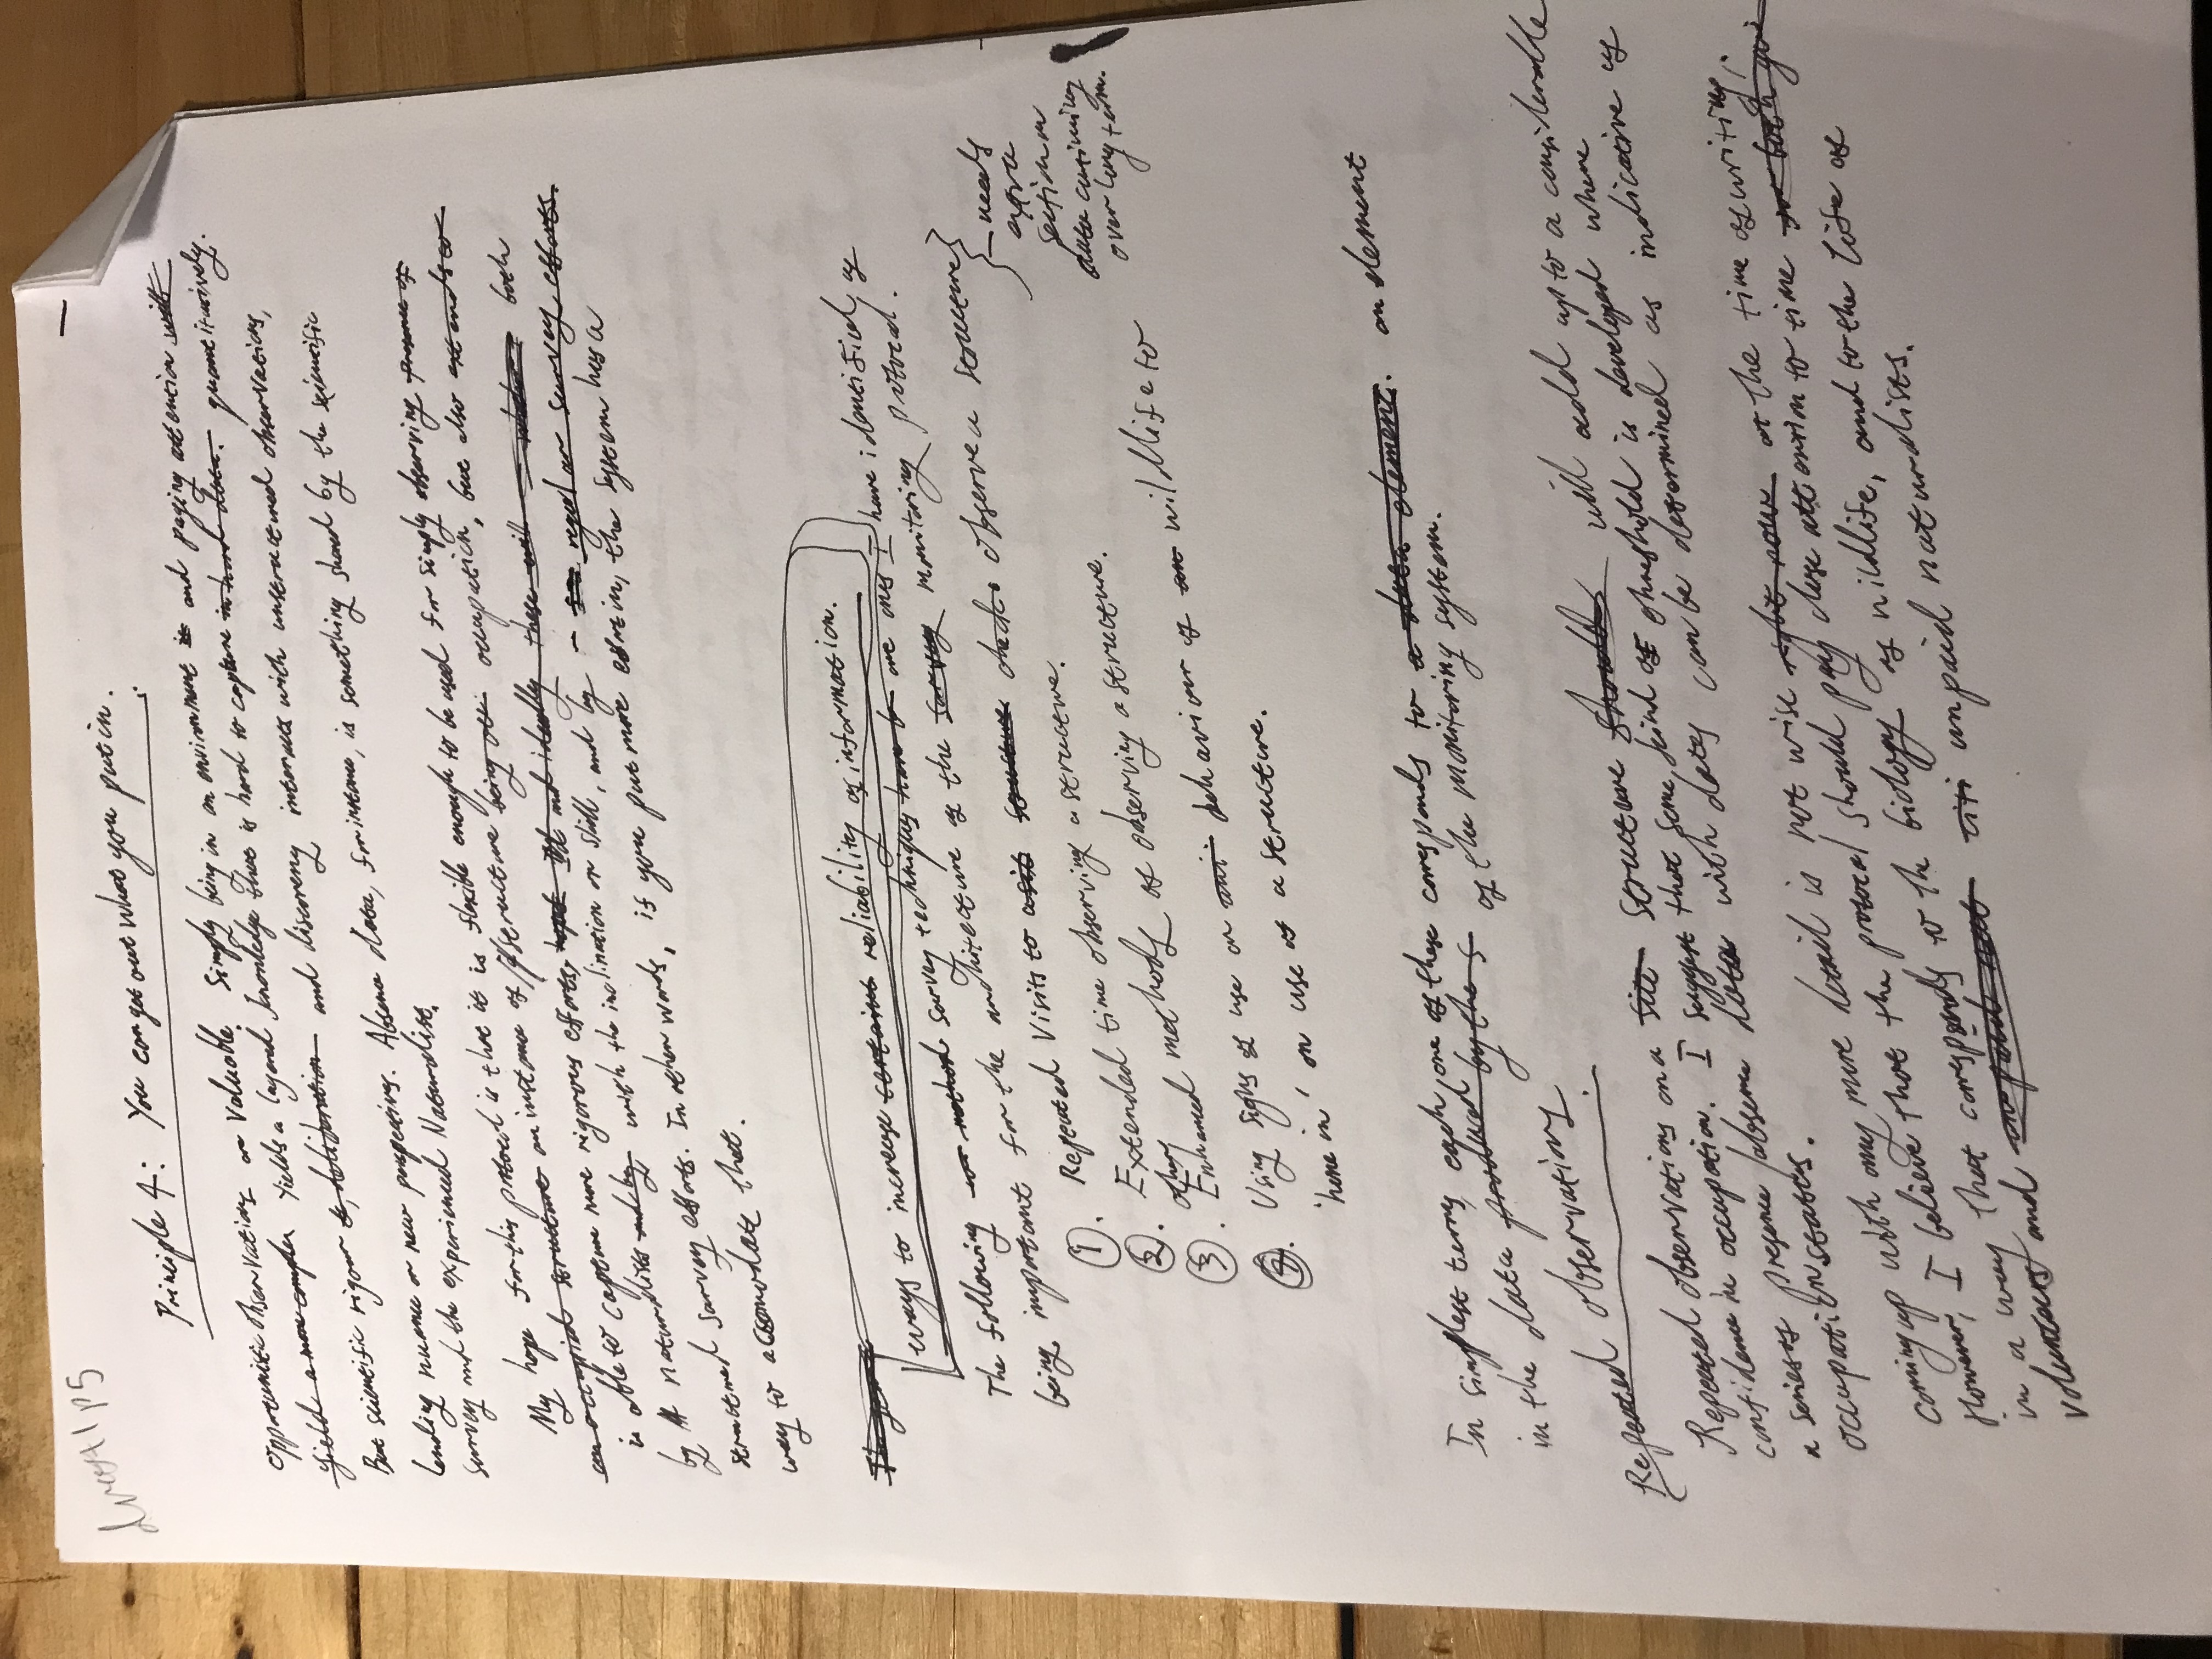 draft 1 p5
Principle 4: You can get out what you put in.
Opportunistic observations are valuable. Simply being in an environment is and paying attention will
yield a more complex yields a layered knowledge that is hard to capture in hard data. quantitatively.
But scientific rigour &, deliberation and discovery interacts with unstructured observations,
lending nuance or new perspectives. Absence data, for instance, is something shared by the scientific
survey and the experienced Naturalist.
My hope for this protocol is that it is flexible enough to be used for simply observing presence of
an occupied structure an instance of structure being occ occupation, but also extends to
is able to capture more rigorous efforts, and ideally these will both
by naturalists and by with the inclination or skill, and by regular survey efforts.
structured survey efforts. In other words, if you put more effort in, the system has a
way to accomodate that.
ways to increase certaint reliability of information.
The following method survey techniques have b are ones I have identified as
being important for the architecture of the survey monitoring protocal.
1. Repeated Visits to a sit structure check. observe a structure
2. Extended time observing a structure.
other
3. Enhanced methods of observing a structure.
4. Using signs of use or ani behaviour of an wildlife to
'hone in' on use of a structure.
- needs
extra
section on
data continuing
over long term.
In simplest terms, each one of these corresponds to a data element. an element
in the data produced by the s of the monitoring system.
Repeated observations.
Repeated observations on a site structure should will add up to a considerable
confidence in occupation. I suggest that some kind of threshold is developed where
a series of presence/absence data with dates can be determined as indicative of
occupation status.
Coming up with any more detail is not wise right now at the time of writing.
However, I believe that the protocal should pay close attention to time both
in a way that corresponds to the biology of wildlife, and to the life of
volunteers and unpaid nat citi unpaid naturalists.